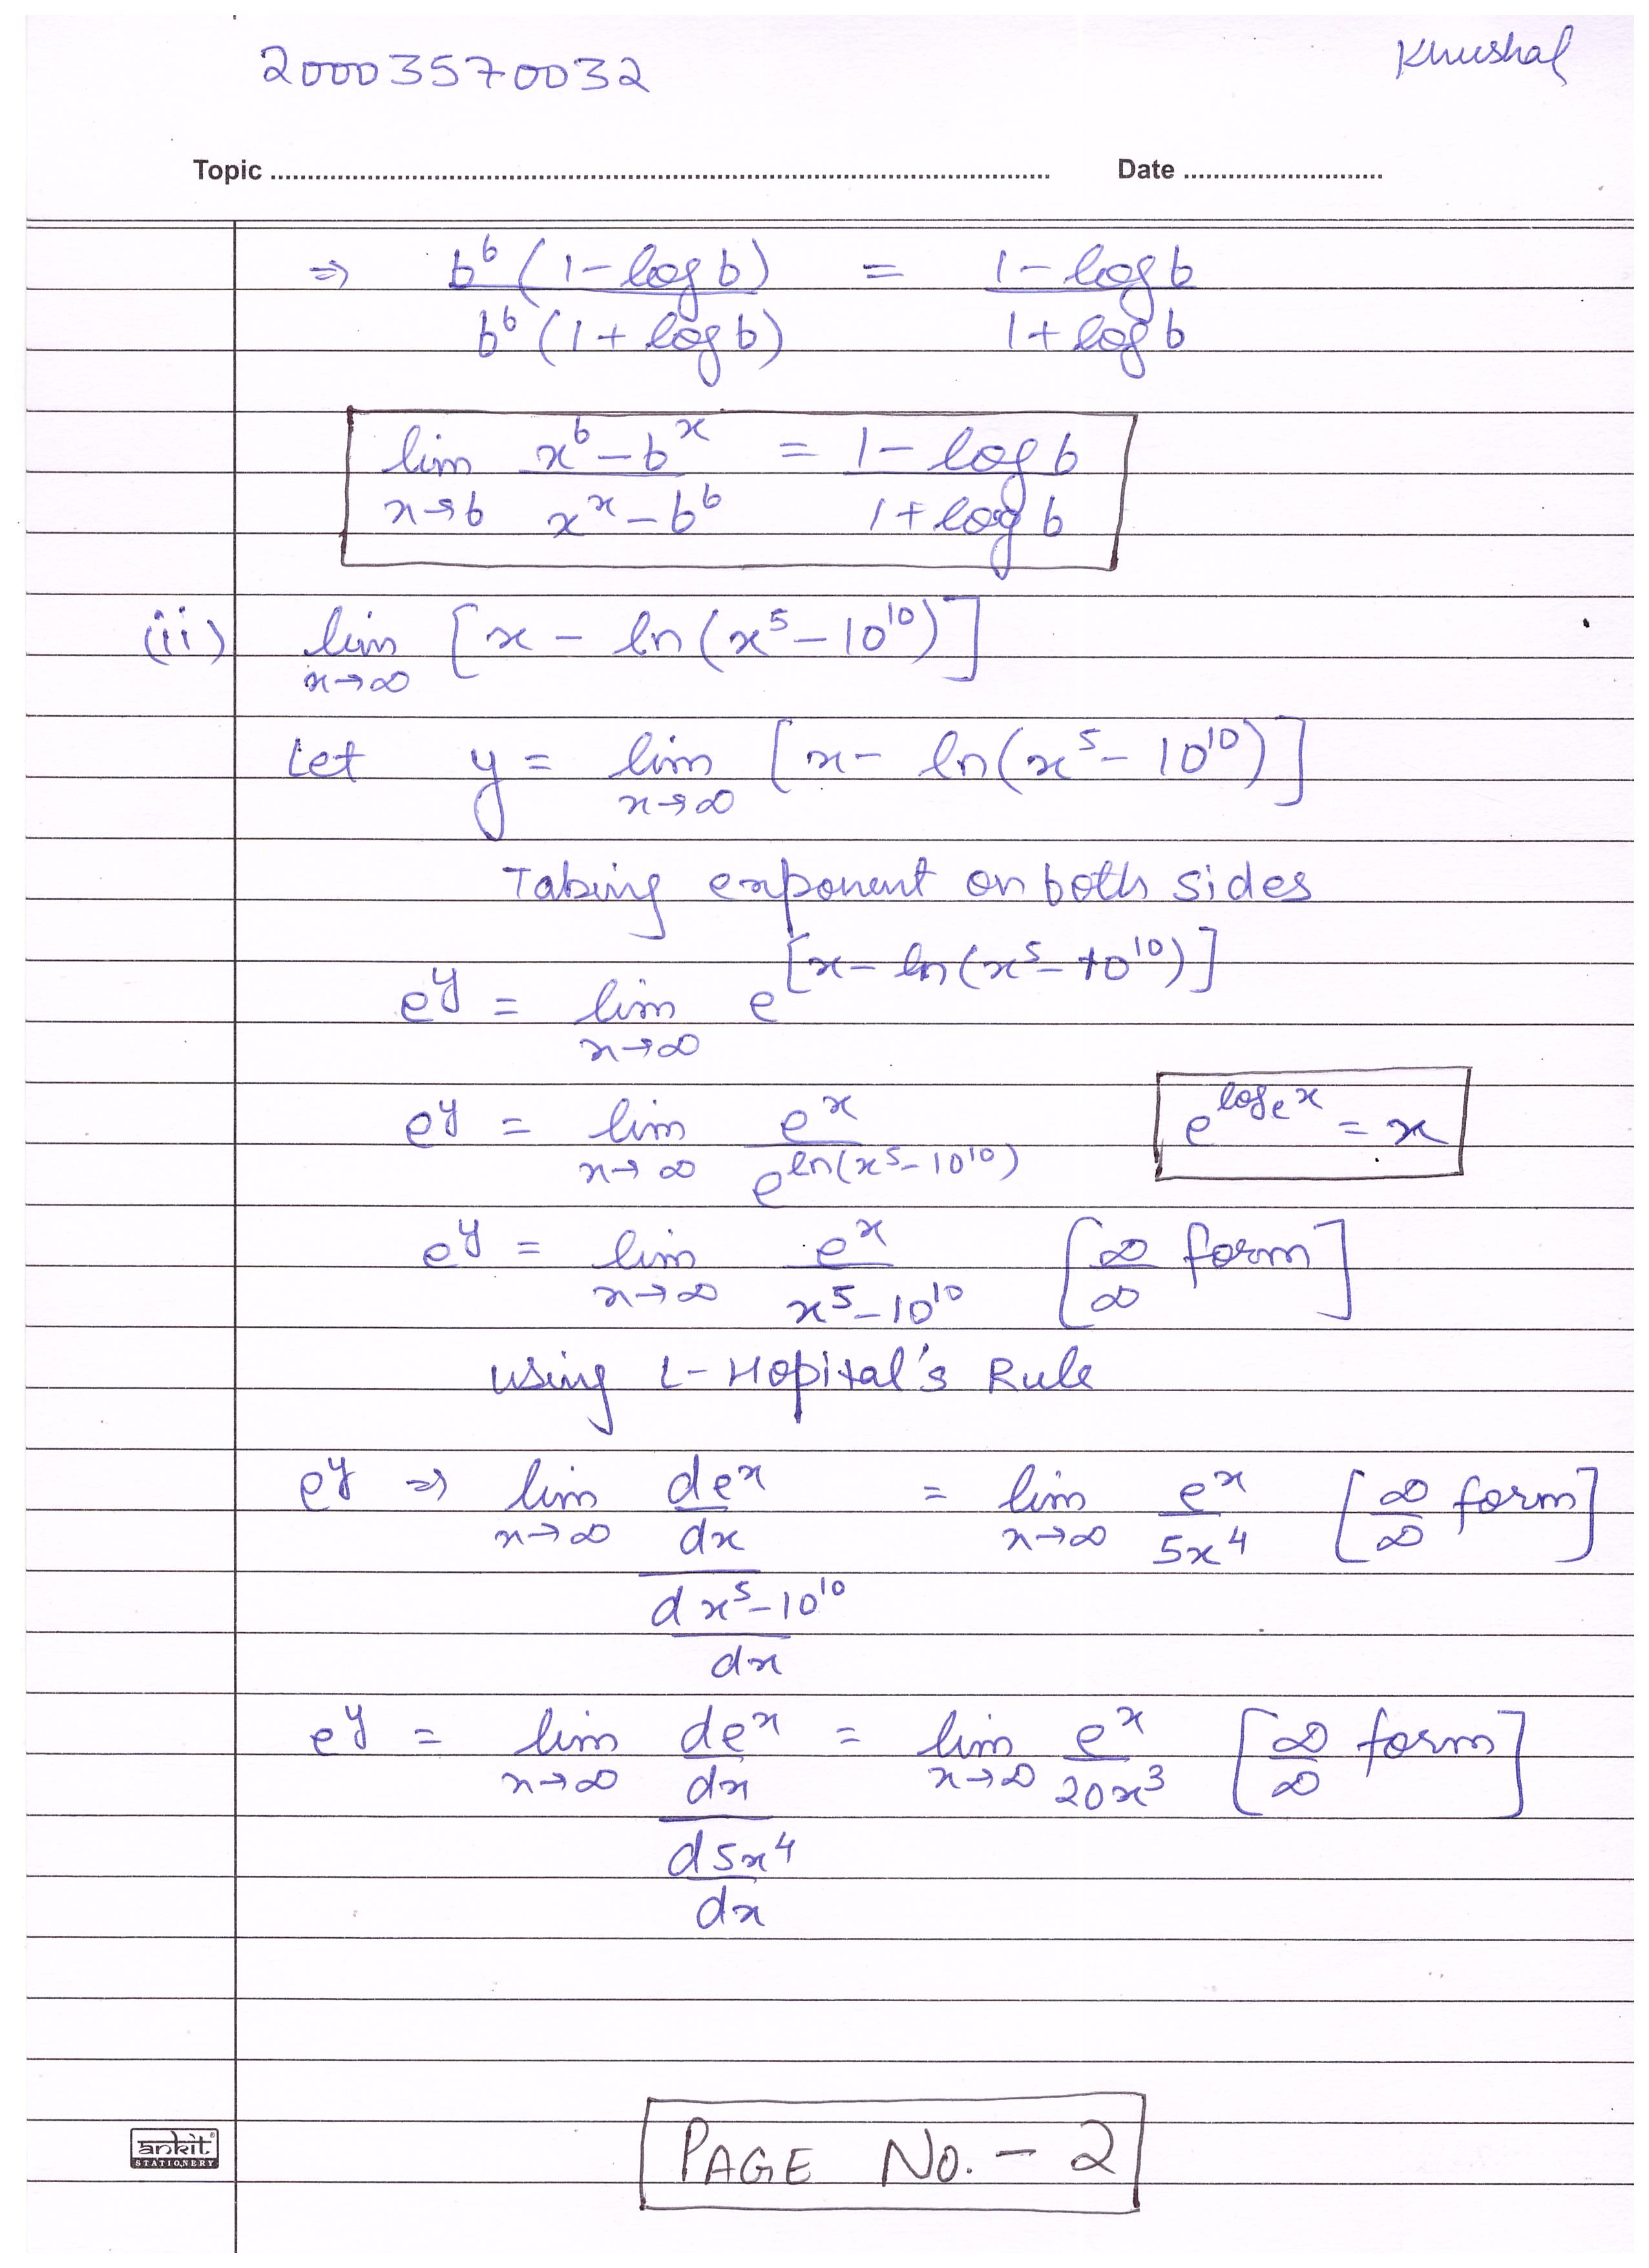 20003570032 Khushal
Topic ........................................ Date ..........................
⇒ b^b (1 - log b) / b^b (1 + log b) = (1 - log b) / (1 + log b)
lim x→b (x^b - b^x) / (x^x - b^b) = (1 - log b) / (1 + log b)
(ii) lim x→∞ [x - ln(x^5 - 10^10)]
Let y = lim x→∞ [x - ln(x^5 - 10^10)]
Taking exponent on both sides
e^y = lim x→∞ e^[x - ln(x^5 - 10^10)]
e^y = lim x→∞ e^x / e^ln(x^5 - 10^10) e^(log_e x) = x
e^y = lim x→∞ e^x / (x^5 - 10^10) [∞/∞ form]
using L-Hopital's Rule
e^y ⇒ lim x→∞ (de^x/dx) / (d x^5 - 10^10/dx) = lim x→∞ e^x / 5x^4 [∞/∞ form]
e^y = lim x→∞ (de^x/dx) / (d5x^4/dx) = lim x→∞ e^x / 20x^3 [∞/∞ form]
ankit
STATIONERY
PAGE NO. - 2